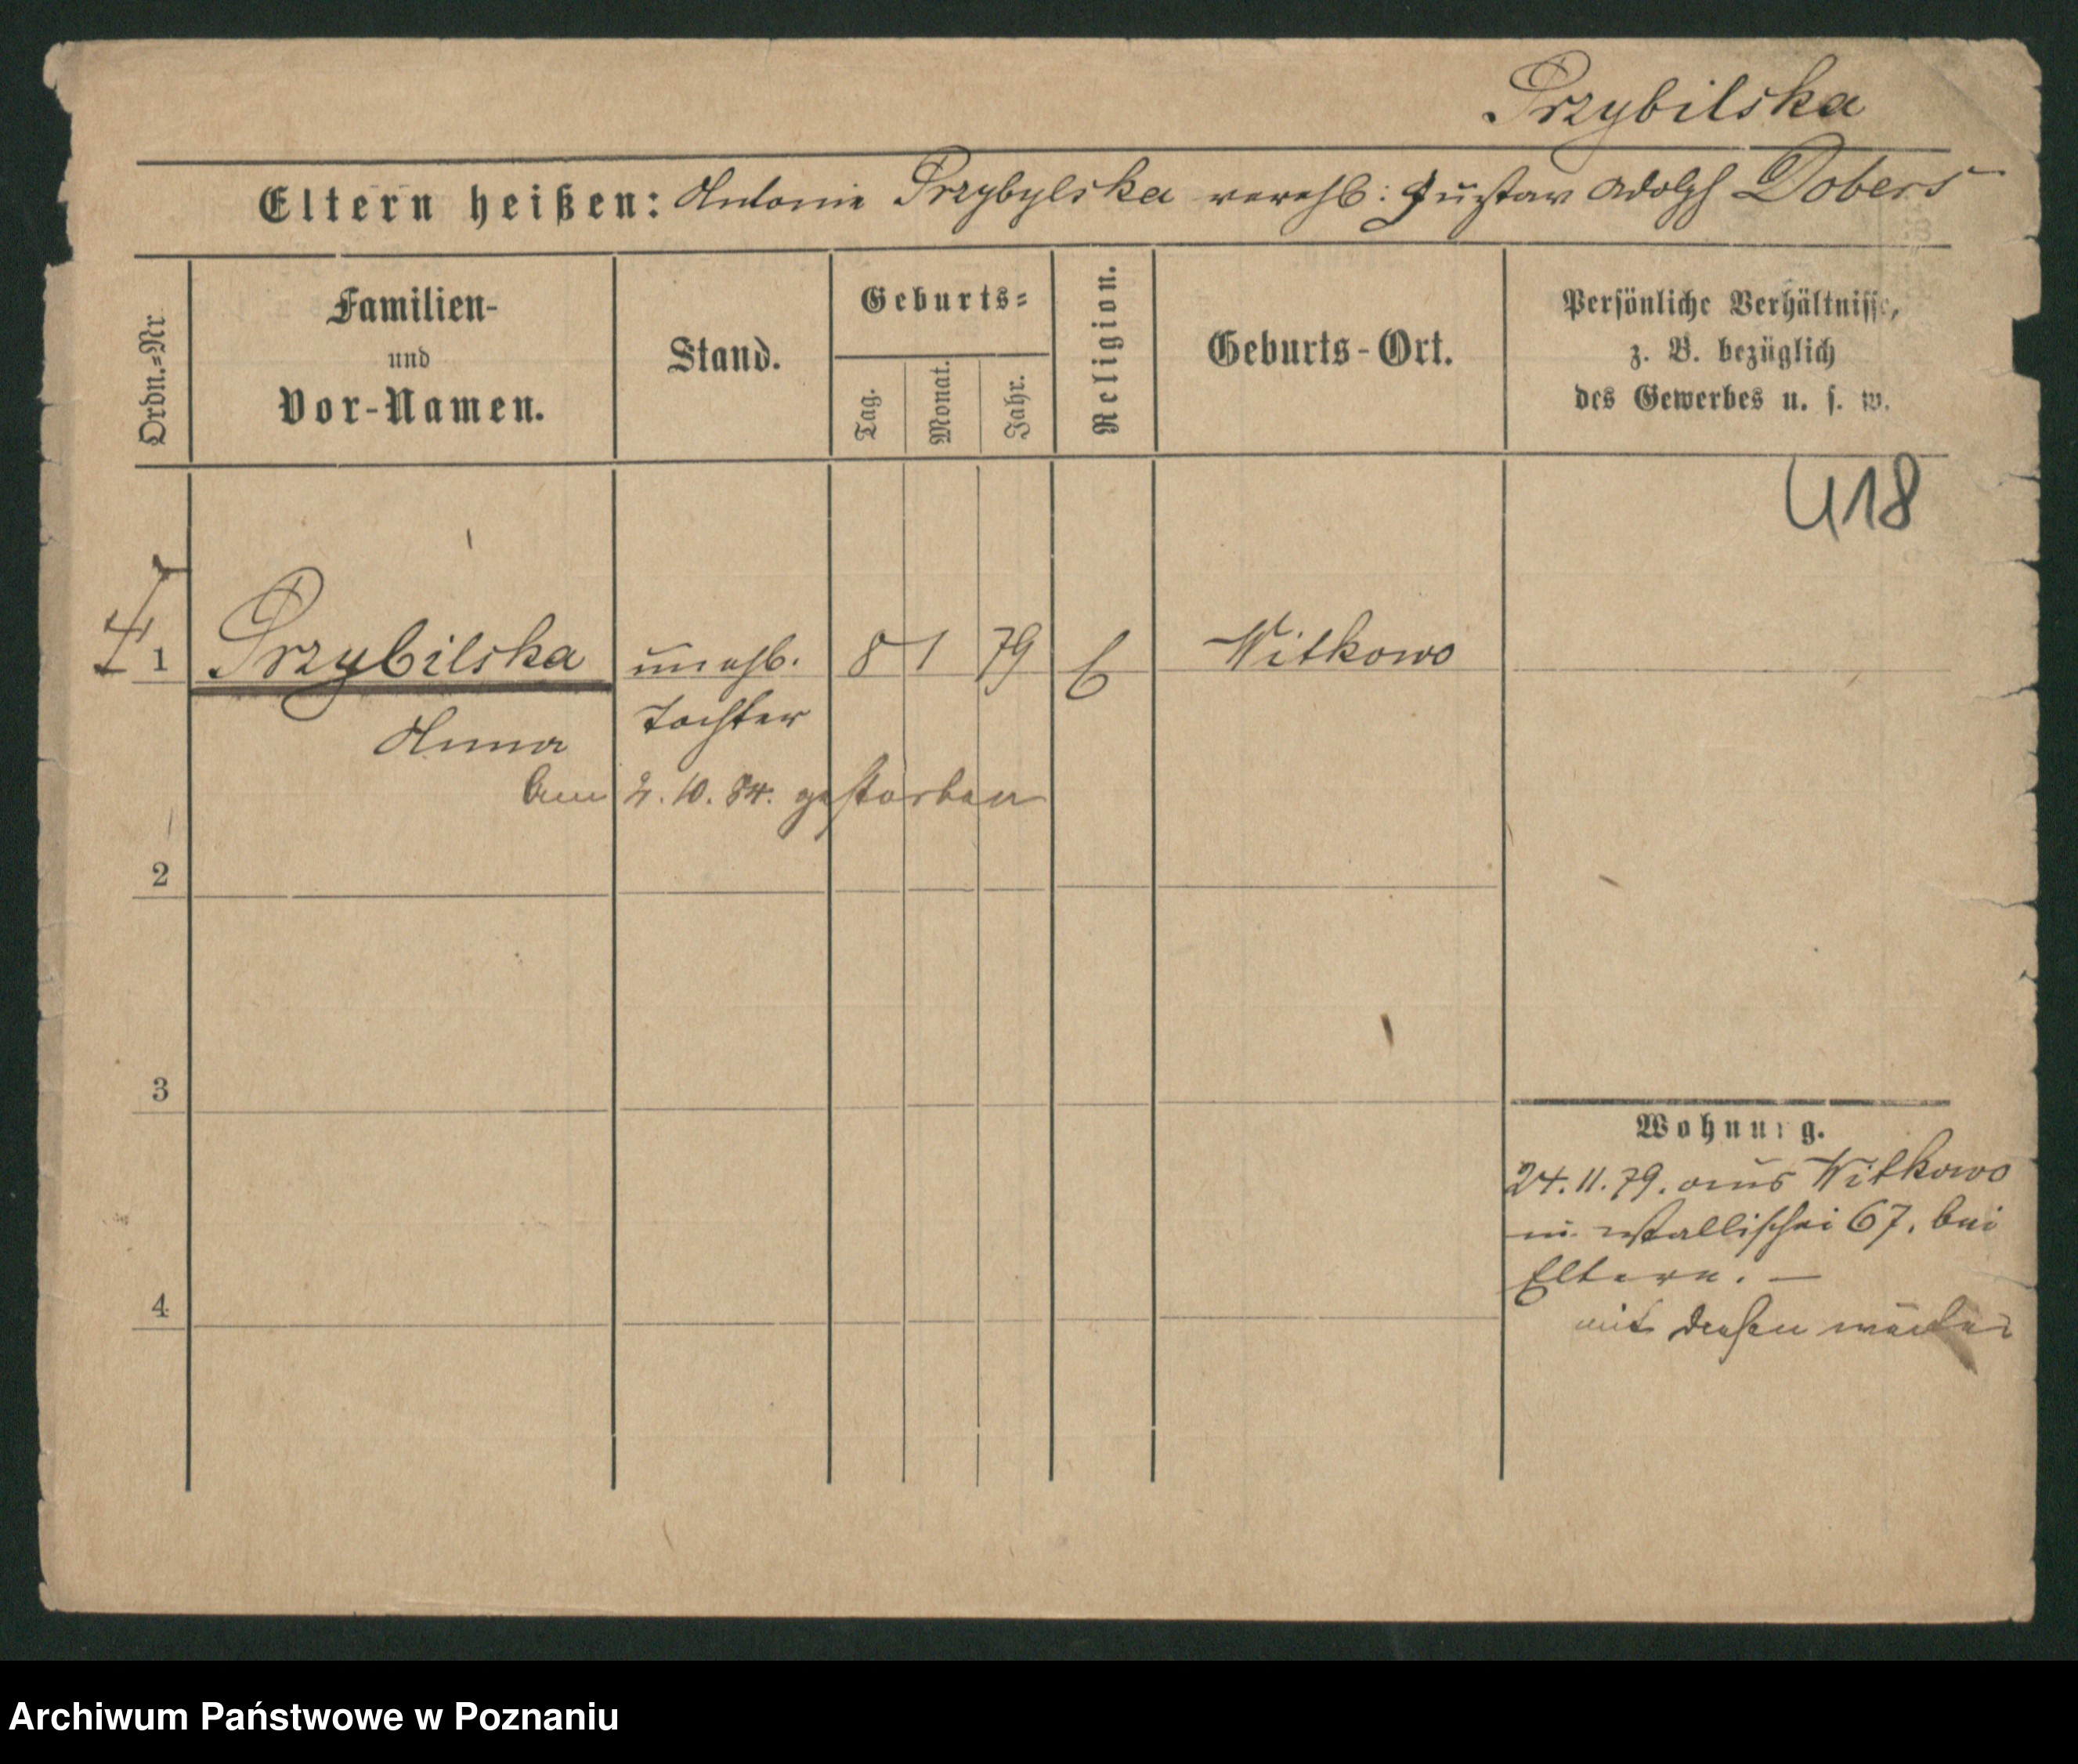 Przybilska
Eltern heißen: Antonie Przybylska verehl: Gustav Adolph Dobers
Ordn.=Nr.
Familien-
und
Vor-Namen.
Stand.
Geburts=
Tag.
Monat.
Jahr.
Religion.
Geburts-Ort.
Persönliche Verhältnisse,
z. B. bezüglich
des Gewerbes u. s. w.
U18
1 Przybilska unehl. 8 1 79 Witkowo
Tochter
Anna
Am 2. 10. 84. gestorben
2
3
4
Wohnung.
24. 11. 79. aus Witkowo
n. Wallischei 67. bei
Eltern. —
mit diesen weiter
Archiwum Państwowe w Poznaniu